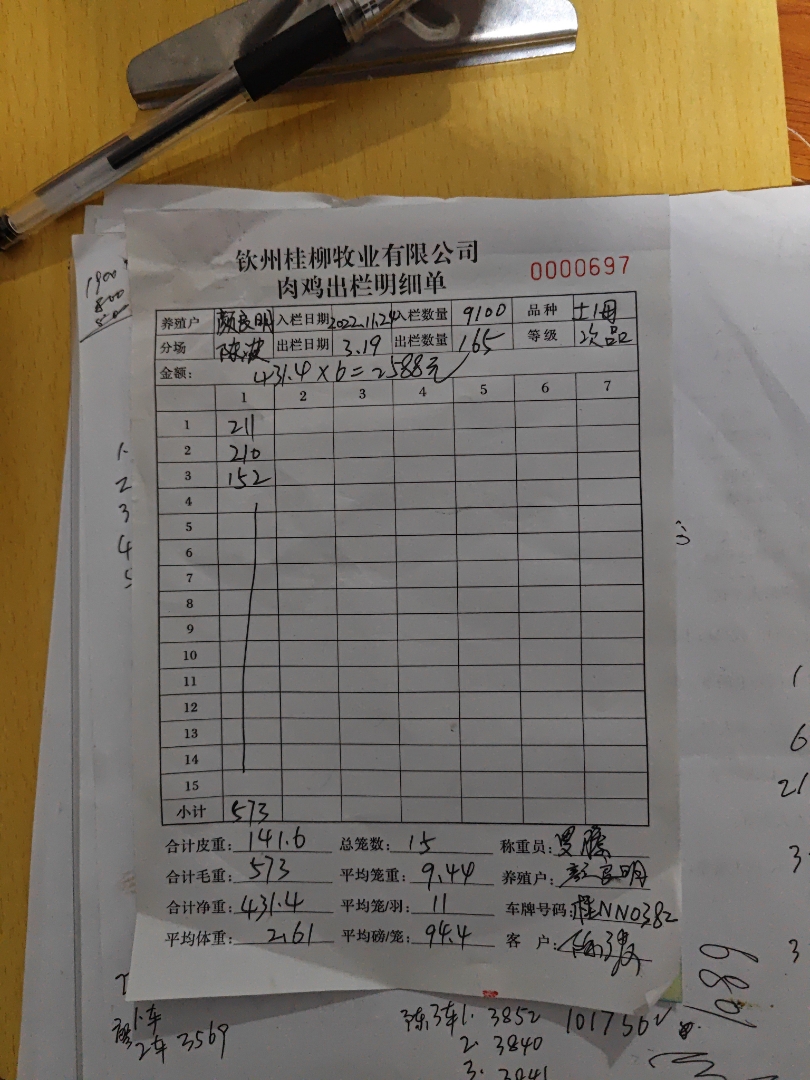 钦州桂柳牧业有限公司
肉鸡出栏明细单 0000697
养殖户 颜良明 入栏日期 2022.11.24 入栏数量 9100 品种 土1母
分场 出栏日期 3.19 出栏数量 165 等级 次品
金额: 431.4×6=2588元
1 2 3 4 5 6 7
1 211
2 210
3 152
4
5
6
7
8
9
10
11
12
13
14
15
小计 573
合计皮重: 141.6 总笼数: 15 称重员:
合计毛重: 573 平均笼重: 9.44 养殖户: 颜良明
合计净重: 431.4 平均笼/羽: 11 车牌号码: 桂NN0382
平均体重: 2.61 平均磅/笼: 94.4 客 户:
1900
800
1.
2
3
4
5
1
6
21
3
3
689
1车
2车 3569
3车1. 3852 101756
2. 3840
3. 3841